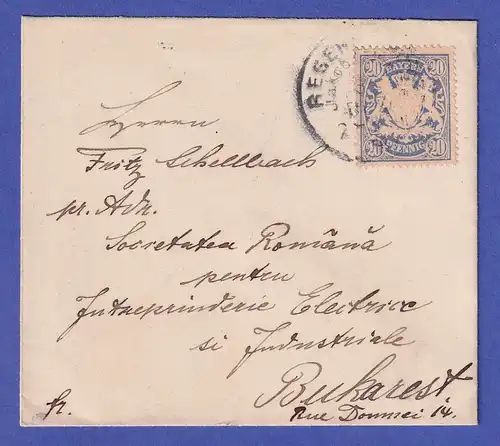 REGEN
20 BAYERN 20
20 PFENNIG 20
Herrn
Fritz Schellbach
pr. Adr.
Societatea Română
pentru
Intreprinderie Electrice
si Industriale
Bukarest
fr.
Rue Doamnei 14.